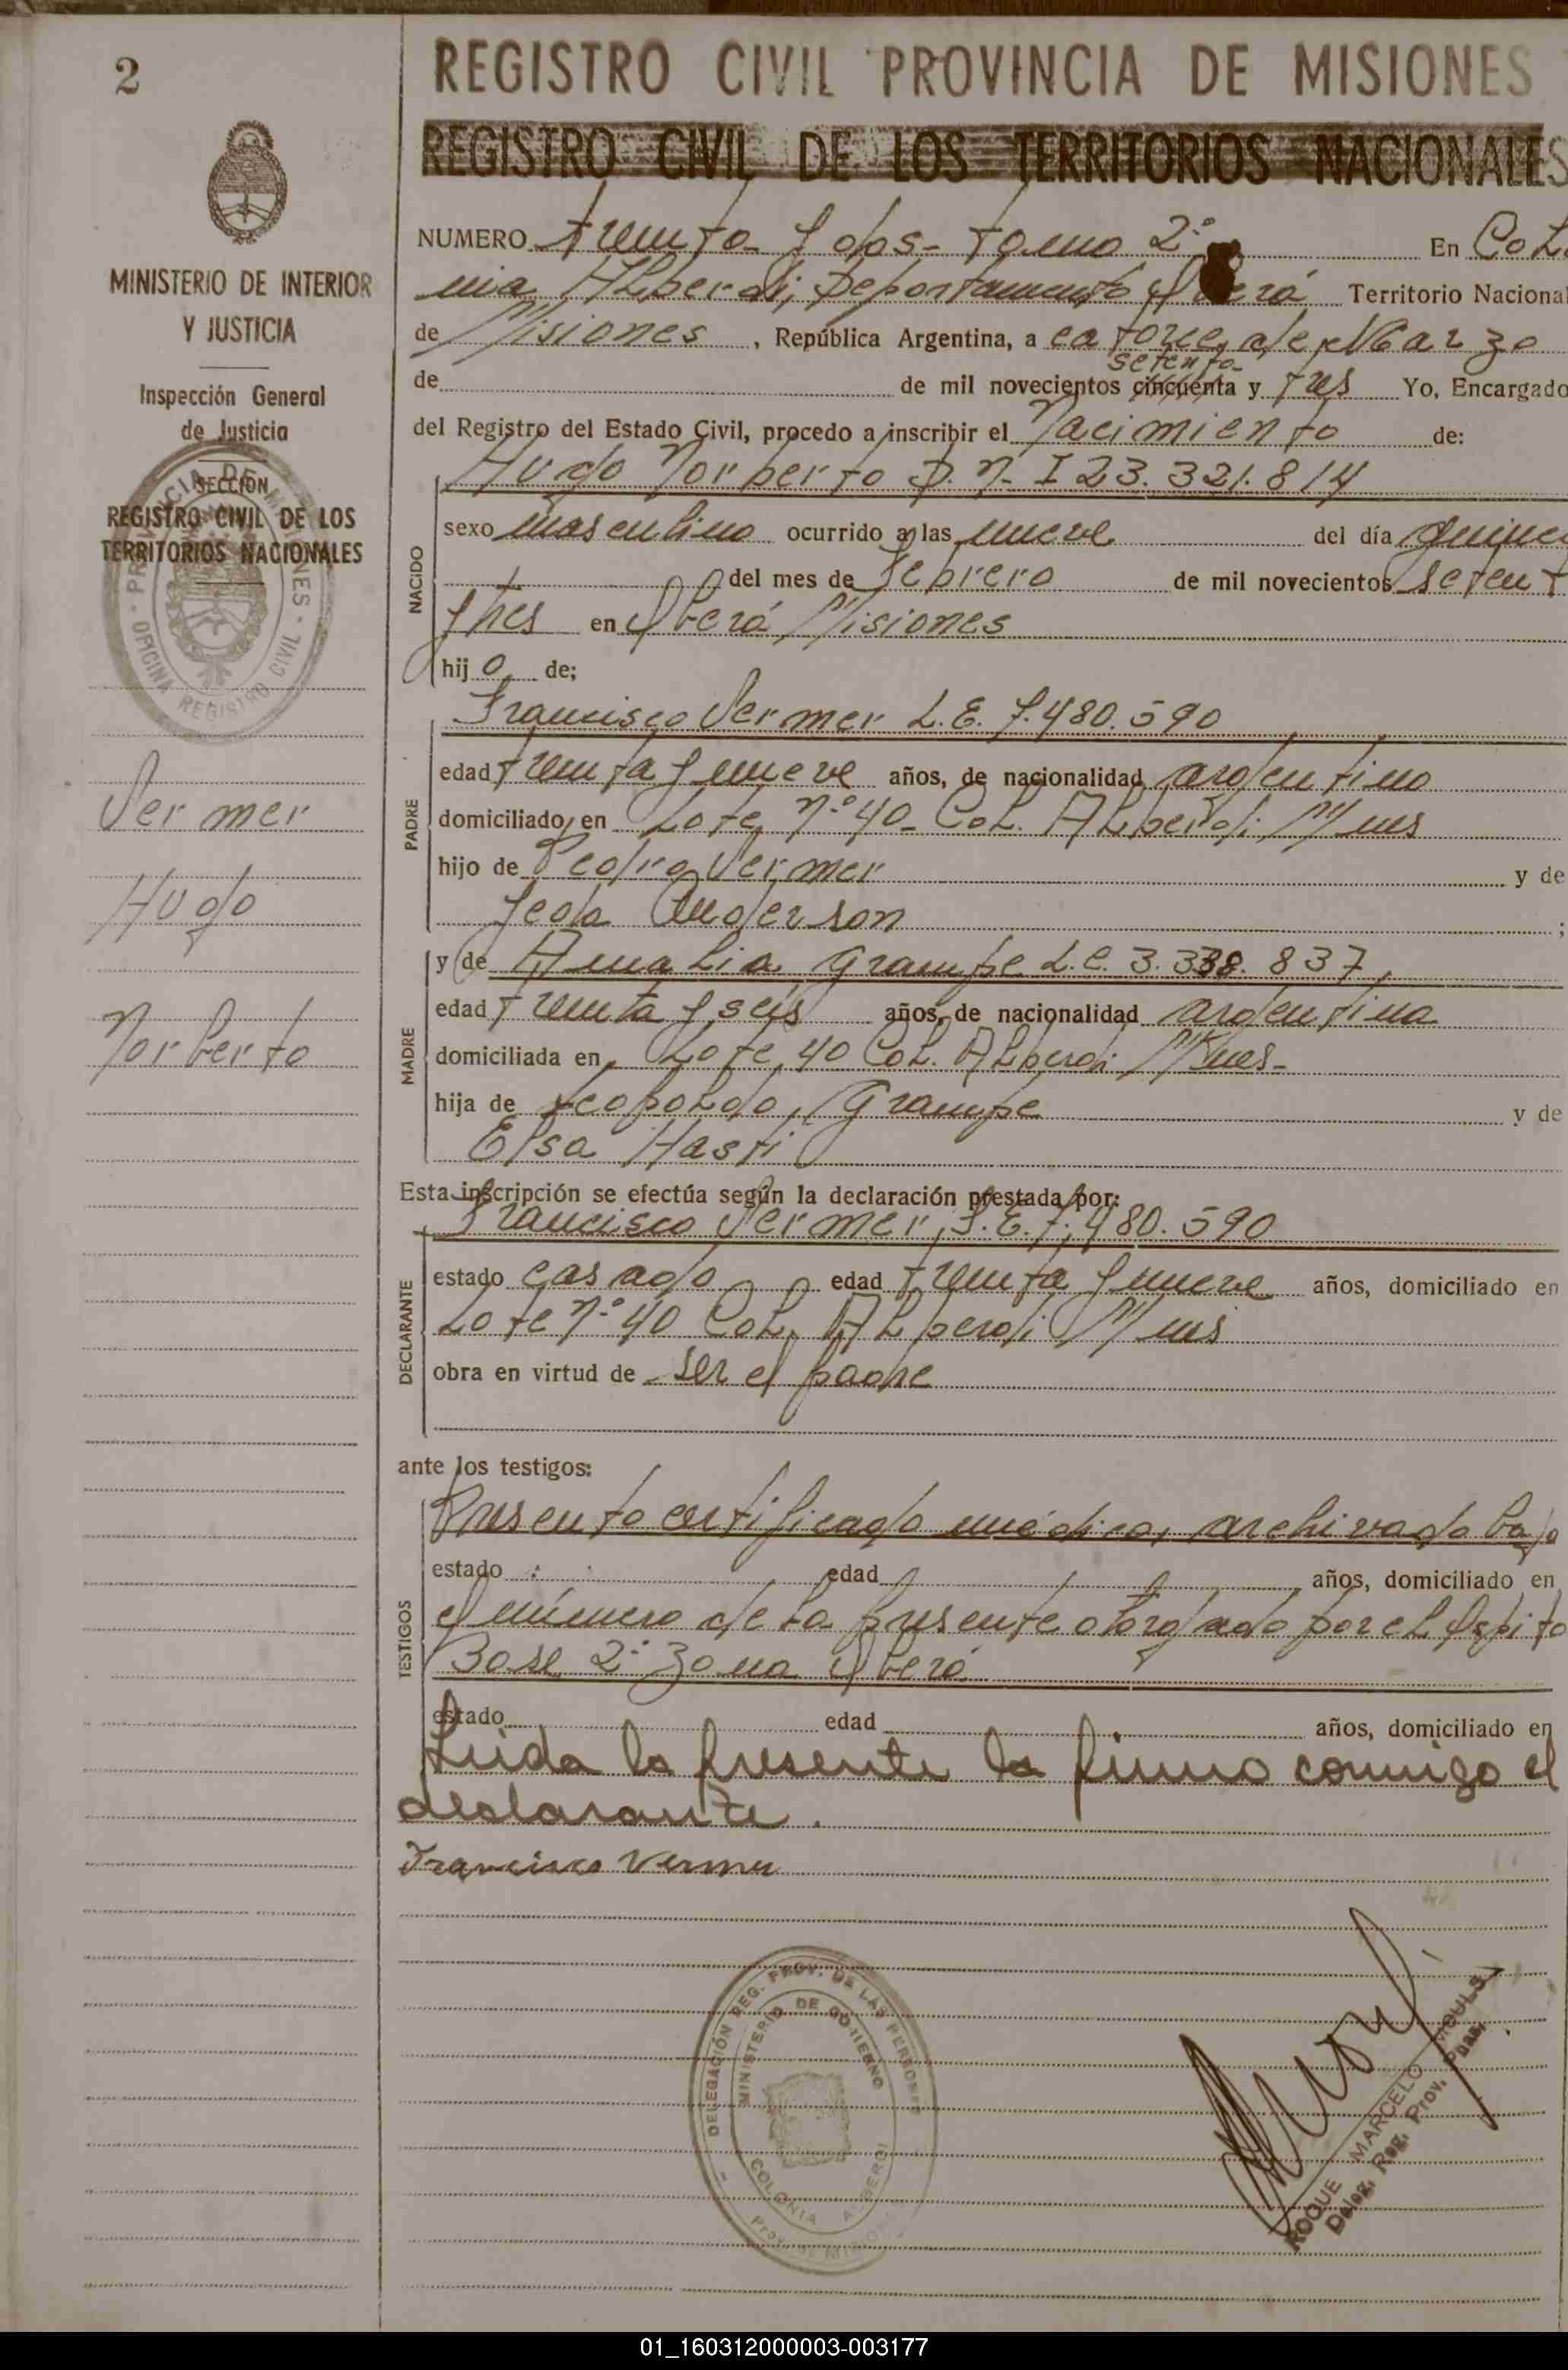 2
REGISTRO CIVIL PROVINCIA DE MISIONES
REGISTRO CIVIL DE LOS TERRITORIOS NACIONALES
MINISTERIO DE INTERIOR
Y JUSTICIA
Inspección General
de Justicia
SECCIÓN
REGISTRO CIVIL DE LOS
TERRITORIOS NACIONALES
PROVINCIA DE MISIONES · OFICINA REGISTRO CIVIL ·
Vermer
Hugo
Norberto
NUMERO treinta y dos - tomo 2º En Colo
nia Alberdi, Departamento Oberá Territorio Nacional
de Misiones, República Argentina, a catorce de Marzo
setenta
de de mil novecientos cincuenta y tres Yo, Encargado
del Registro del Estado Civil, procedo a inscribir el Nacimiento de:
Hugo Norberto D.N.I 23.321.814
NACIDO
sexo masculino ocurrido a las nueve del día quince
del mes de Febrero de mil novecientos setent
y tres en Oberá Misiones
hijo de;
Francisco Vermer L.E. 7.480.590
PADRE
edad treinta y nueve años, de nacionalidad argentino
domiciliado en Lote Nº 40 - Col. Alberdi Mnes
hijo de Pedro Vermer y de
Anderson ;
y de Amalia Grampe L.C. 3.338.837,
MADRE
edad treinta y seis años, de nacionalidad argentina
domiciliada en Lote 40 Col. Alberdi Mnes-
hija de Leopoldo Grampe y de
Elsa Hasti
Esta inscripción se efectúa según la declaración prestada por:
Francisco Vermer, L.E. 7.480.590
DECLARANTE
estado casado edad treinta y nueve años, domiciliado en
Lote Nº 40 Col. Alberdi Mnes
obra en virtud de ser el padre
ante los testigos:
TESTIGOS
Presento certificado médico, archivado bajo
estado edad años, domiciliado en
el número de la presente otorgado por el Hospito
Base 2º Zona Oberá
estado edad años, domiciliado en
Leida la presente la firma conmigo el
declarante.
Francisco Vermer
DELEGACIÓN REG. PROV. DE LAS PERSONAS
MINISTERIO DE GOBIERNO
COLONIA ALBERDI
Prov. de MISIONES
ROQUE MARCELO
Deleg. Reg. Prov. Pnas.
01_160312000003-003177